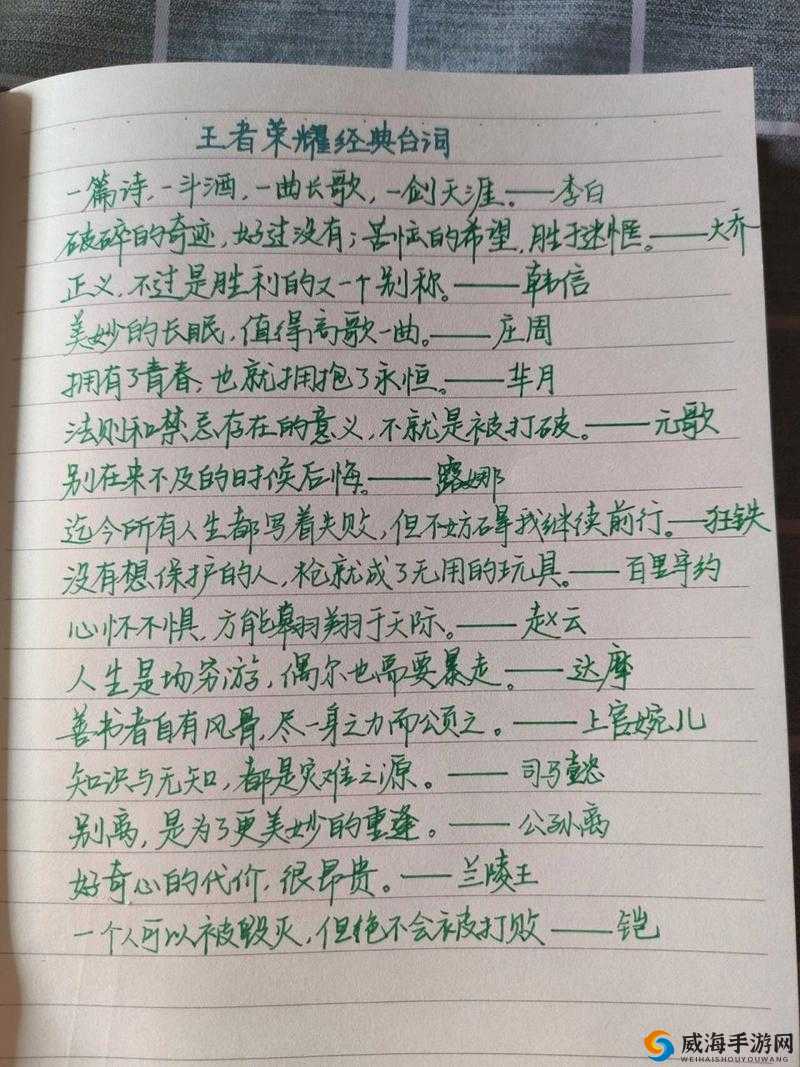 王者荣耀经典台词
一篇诗,一斗酒,一曲长歌,一剑天涯。——李白
破碎的奇迹,好过没有;苦恼的希望,胜于迷惘。——大乔
正义,不过是胜利的又一个别称。——韩信
美妙的长眠,值得高歌一曲。——庄周
拥有了青春,也就拥抱了永恒。——芈月
法则和禁忌存在的意义,不就是被打破。——元歌
别在来不及的时候后悔。——露娜
迄今所有人生都写着失败,但不妨碍我继续前行。—狂铁
没有想保护的人,枪就成了无用的玩具。——百里守约
心怀不惧,方能翱翔于天际。——赵云
人生是场穷游,偶尔也需要暴走。——达摩
善书者自有风骨,尽一身之力而颂之。——上官婉儿
知识与无知,都是灾难之源。——司马懿
别离,是为了更美妙的重逢。——公孙离
好奇心的代价,很昂贵。——兰陵王
一个人可以被毁灭,但绝不会被打败——铠
威海手游网
WEIHAISHOUYOUWANG